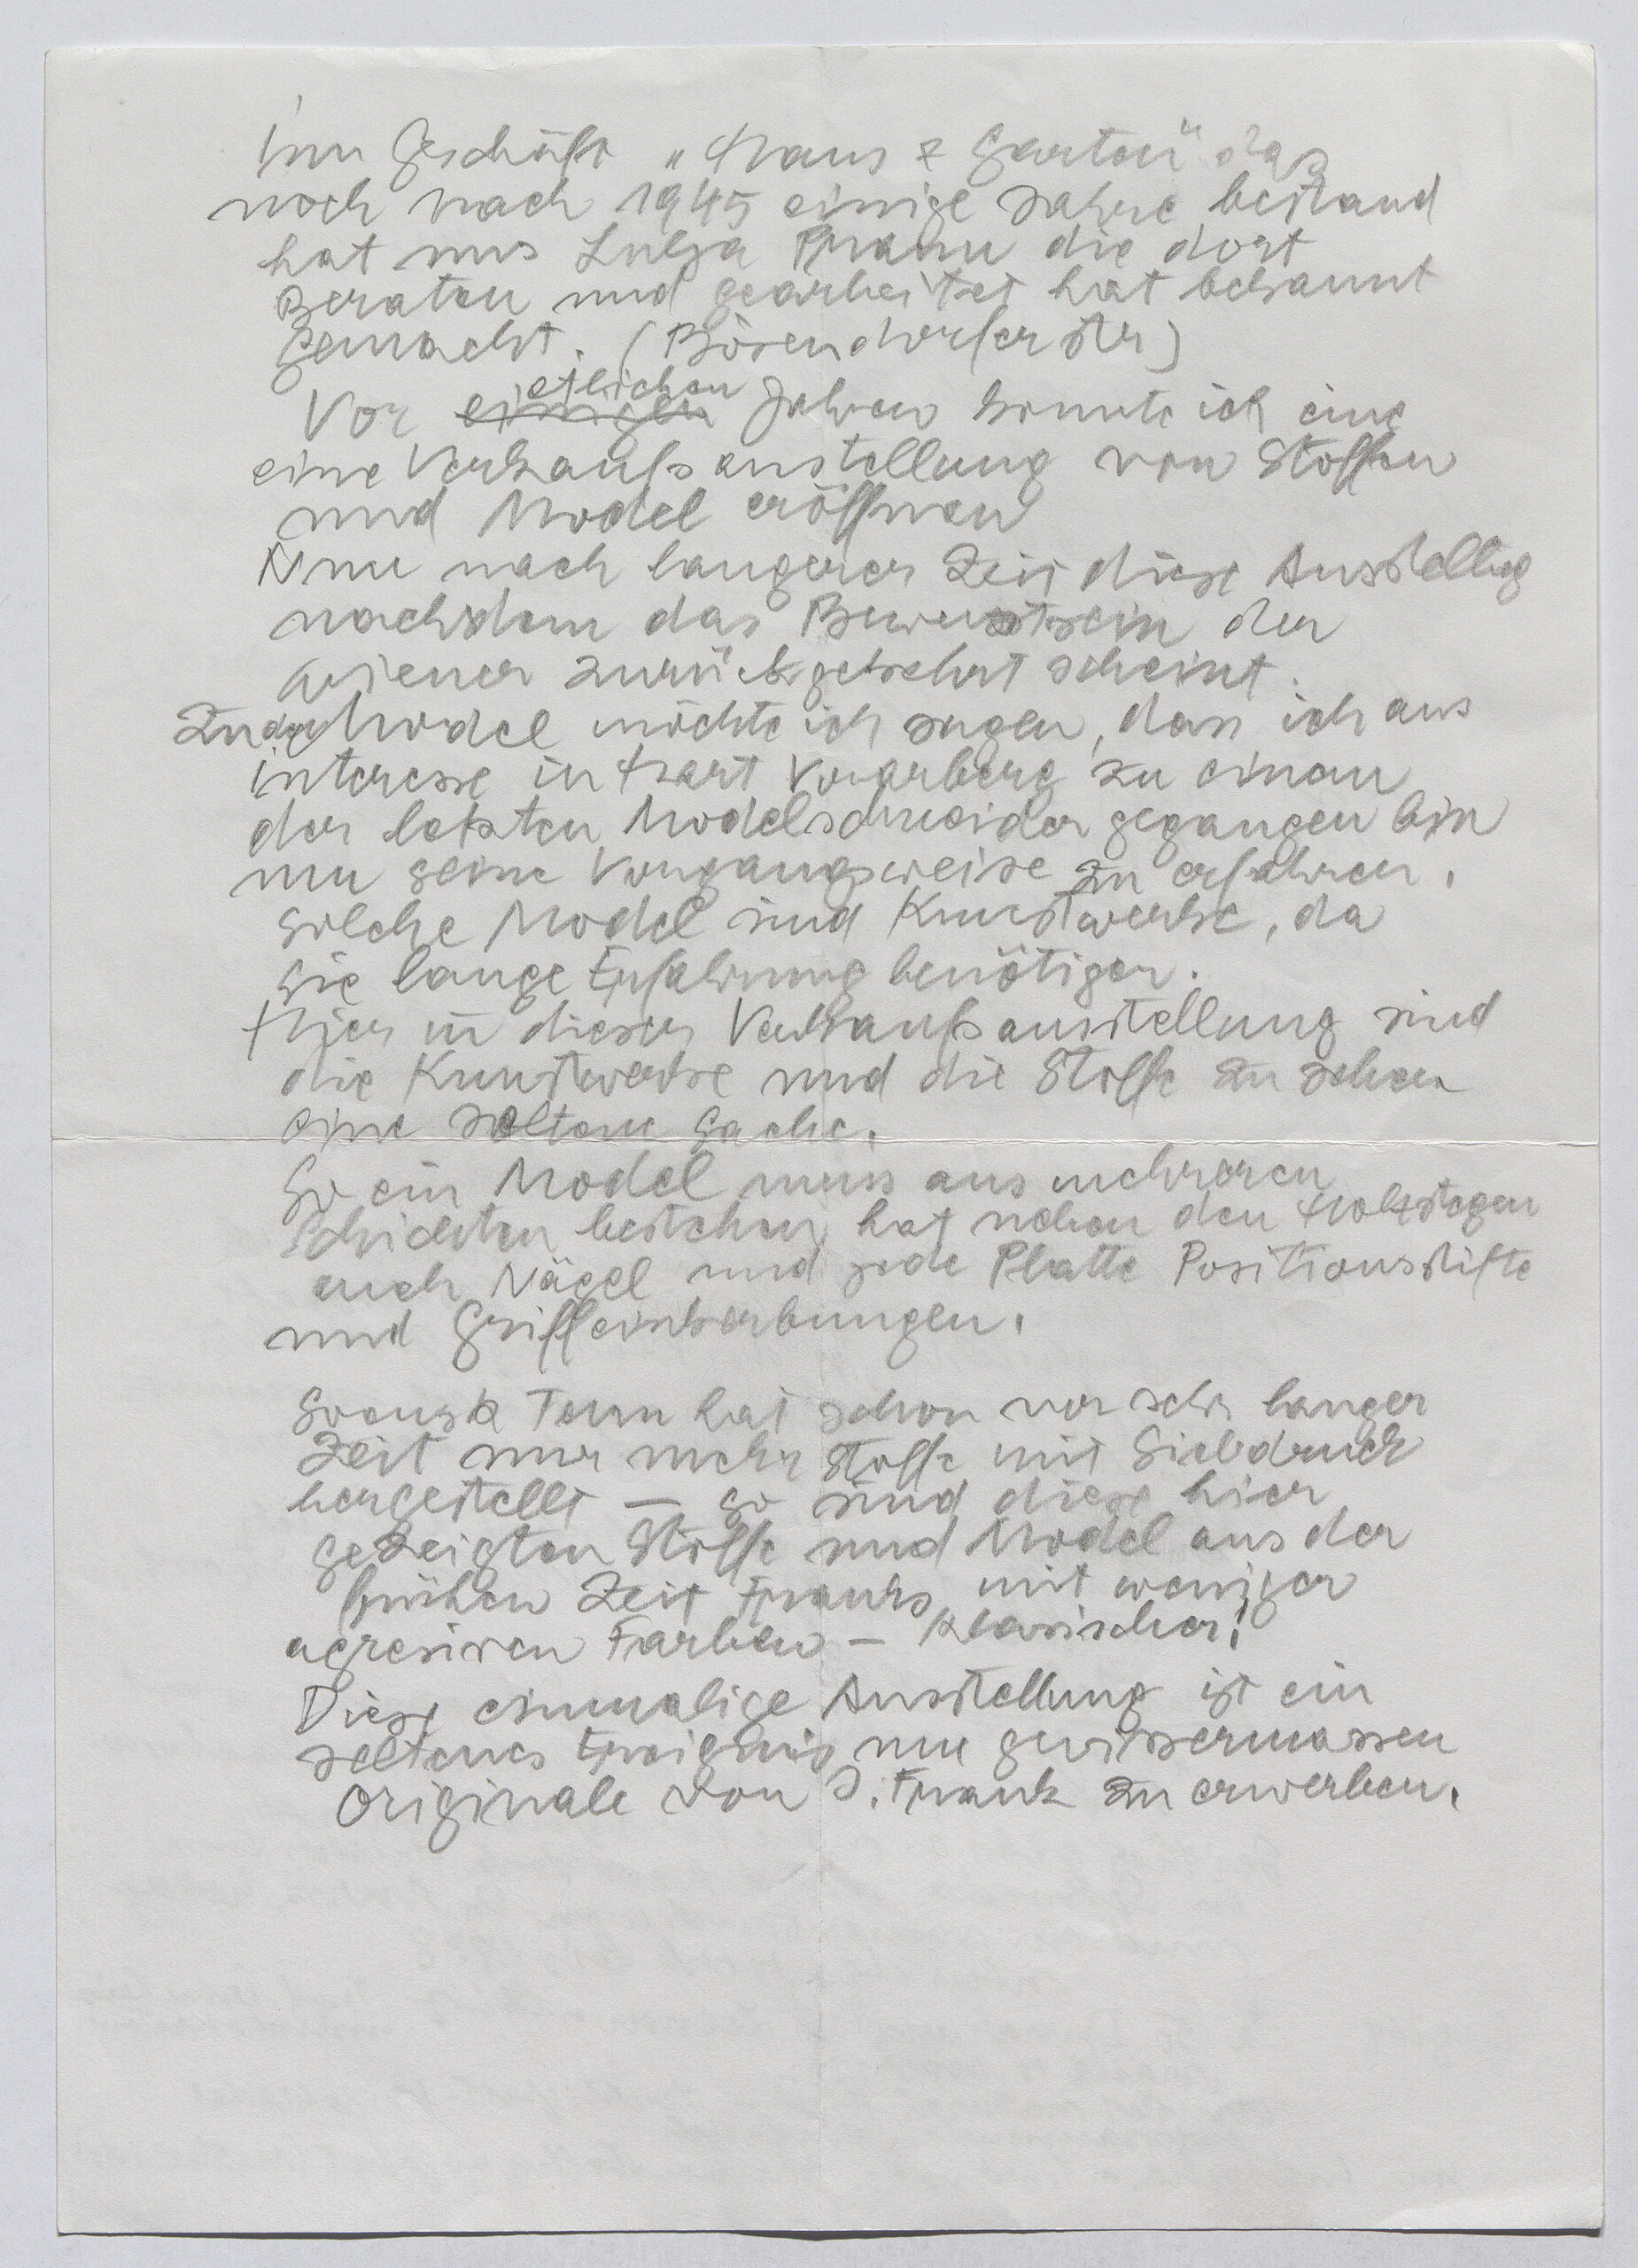 Im Geschäft „Haus & Garten" das
noch nach 1945 einige Jahre bestand
hat uns die dort
Beraten und gearbeitet hat bekannt
gemacht. (Bösendorferstr)
Vor einigen etlichen Jahren konnte ich eine
eine Verkaufsanstellung von Stoffen
und Model eröffnen
Nun nach langerer Zeit diese Ausstellug
nachdem das Bewustsein der
Wiener zurückgekehrt scheint.
Zu den Model möchte ich sagen, dass ich aus
interesse in Hart Vorarberg zu einen
der letzten Modelschneider gegangen bin
um seine Vorgangsweise zu erfahren.
Solche Model sind Kunstwerke, da
sie lange Erfahrung benötigen.
Hier in dieser Verkaufsausstellung sind
die Kunstwerke und die Stoffe zu sehen
eine seltene Sache.
So ein Model muss aus mehreren
Schichten bestehen, hat neben den Holzstegen
auch Nägel und jede Platte Positionsstifte
und Griffeinkerbungen.
Svensk Tenn hat schon vor sehr langer
Zeit nur mehr Stoffe mit Siebdruck
hergestellt – so sind diese hier
gezeigten Stoffe und Model aus der
frühen Zeit Franks, mit weniger
agresiven Farben – klassischer!
Diese einmalige Ausstellung ist ein
seltenes Ereignis um gewissermassen
Originale von J. Frank zu erwerben.